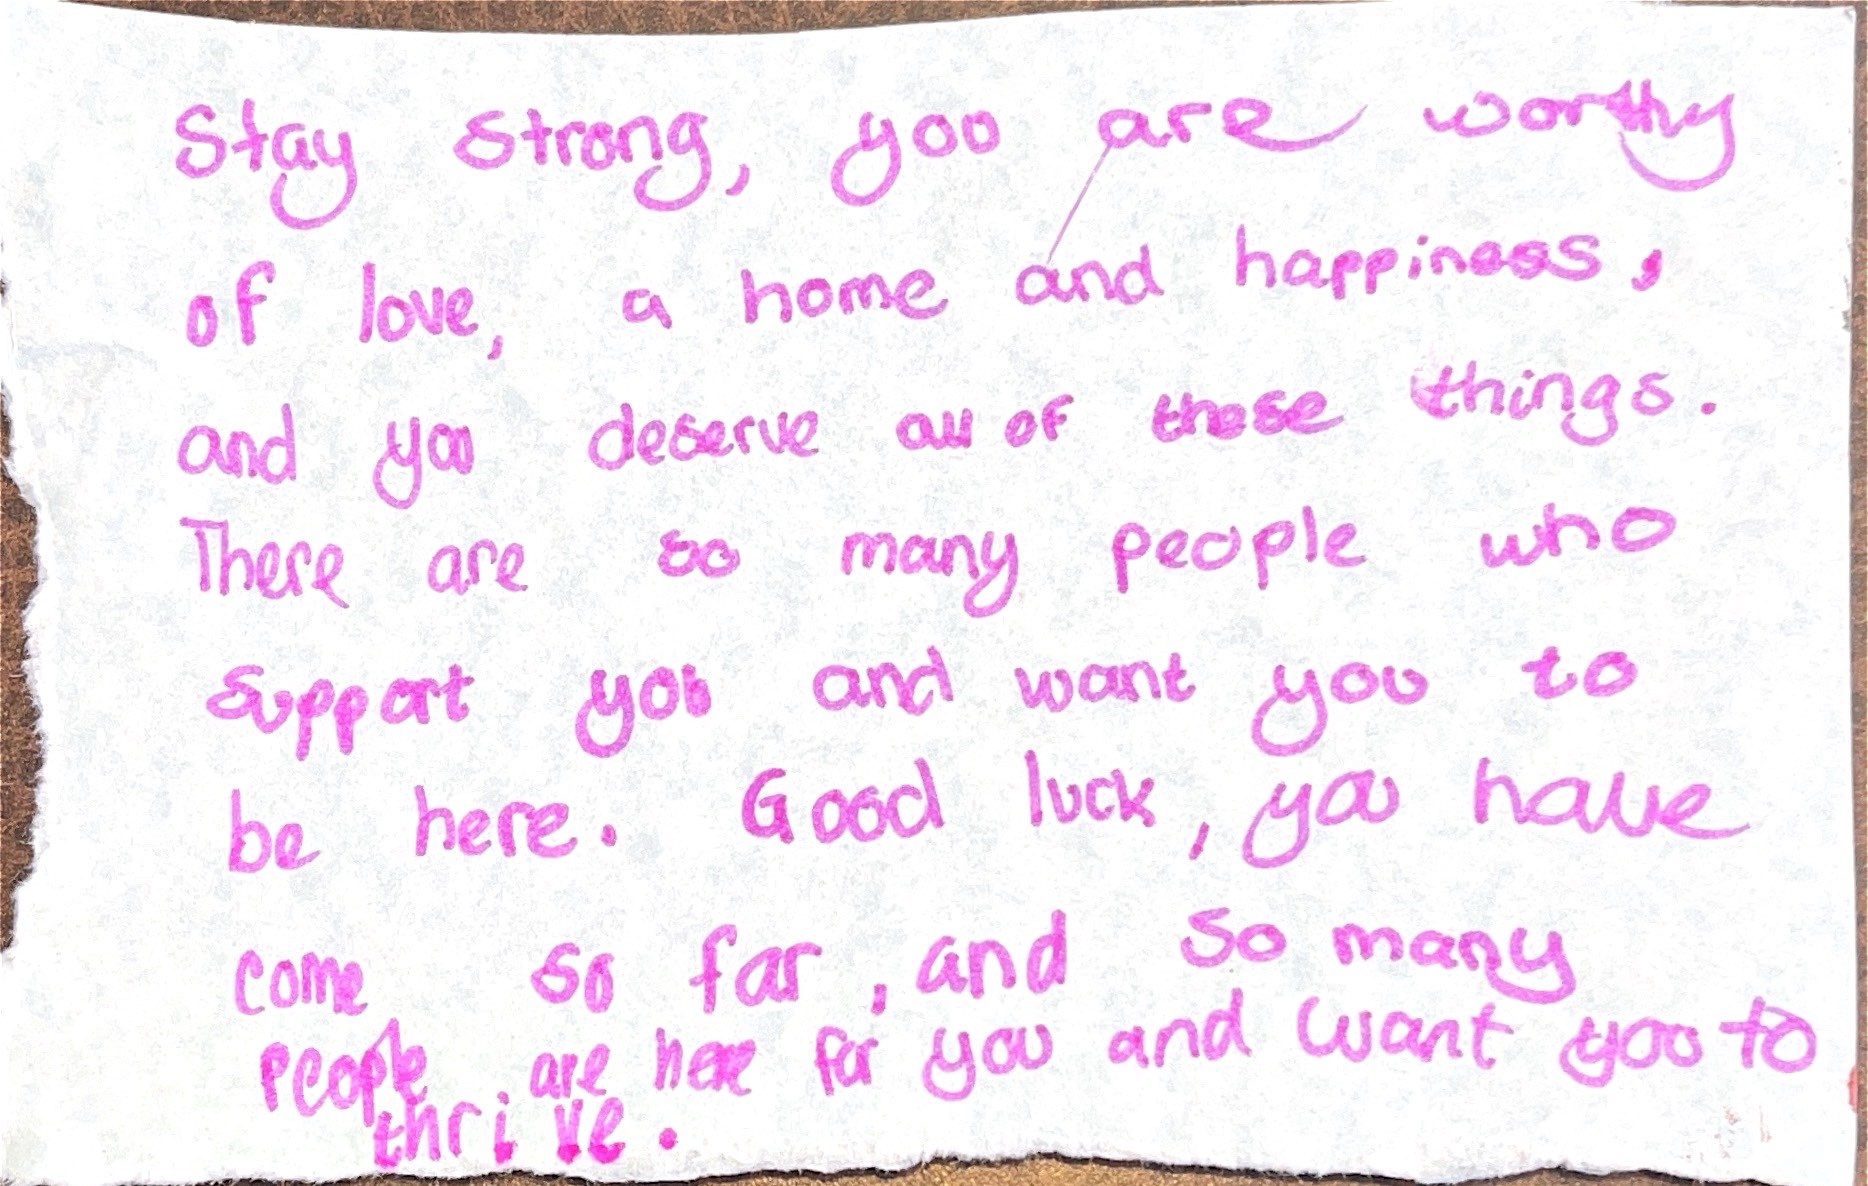 Stay strong, you are worthy
of love, a home and happiness,
and you deserve all of these things.
There are so many people who
support you and want you to
be here. Good luck, you have
come so far, and so many
people are here for you and want you to
thrive.